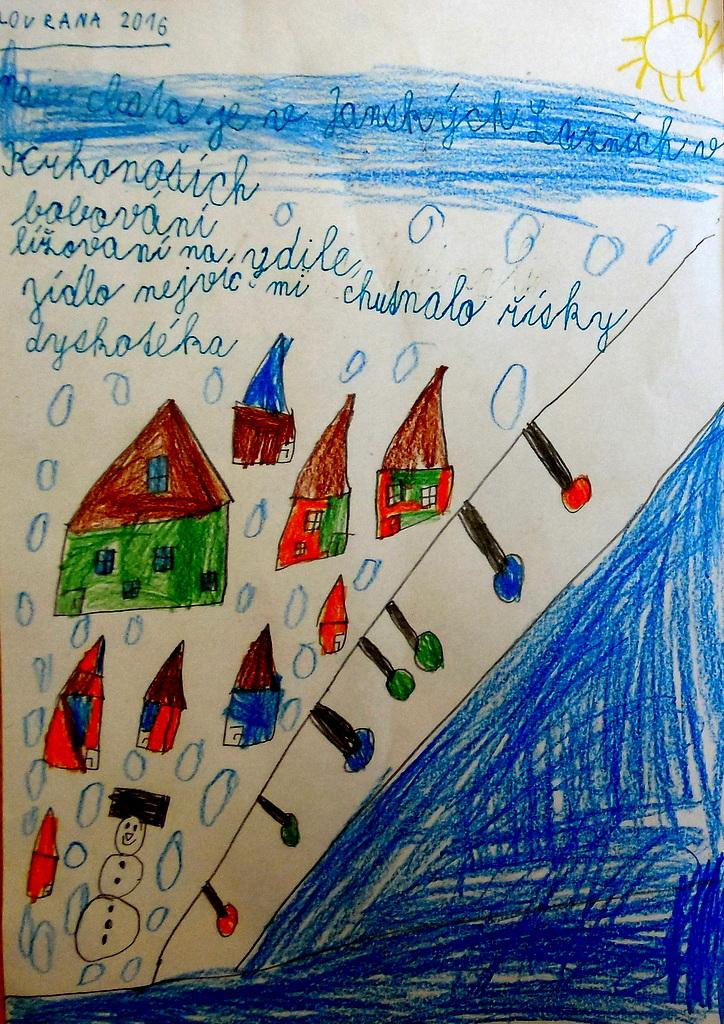 LOVRANA 2016
Naše chata je v Janských Lázních v
Krkonoších
bobování
lížovaní na ydile,
zídlo nejvíc mi chutnalo řísky
dyskotéka